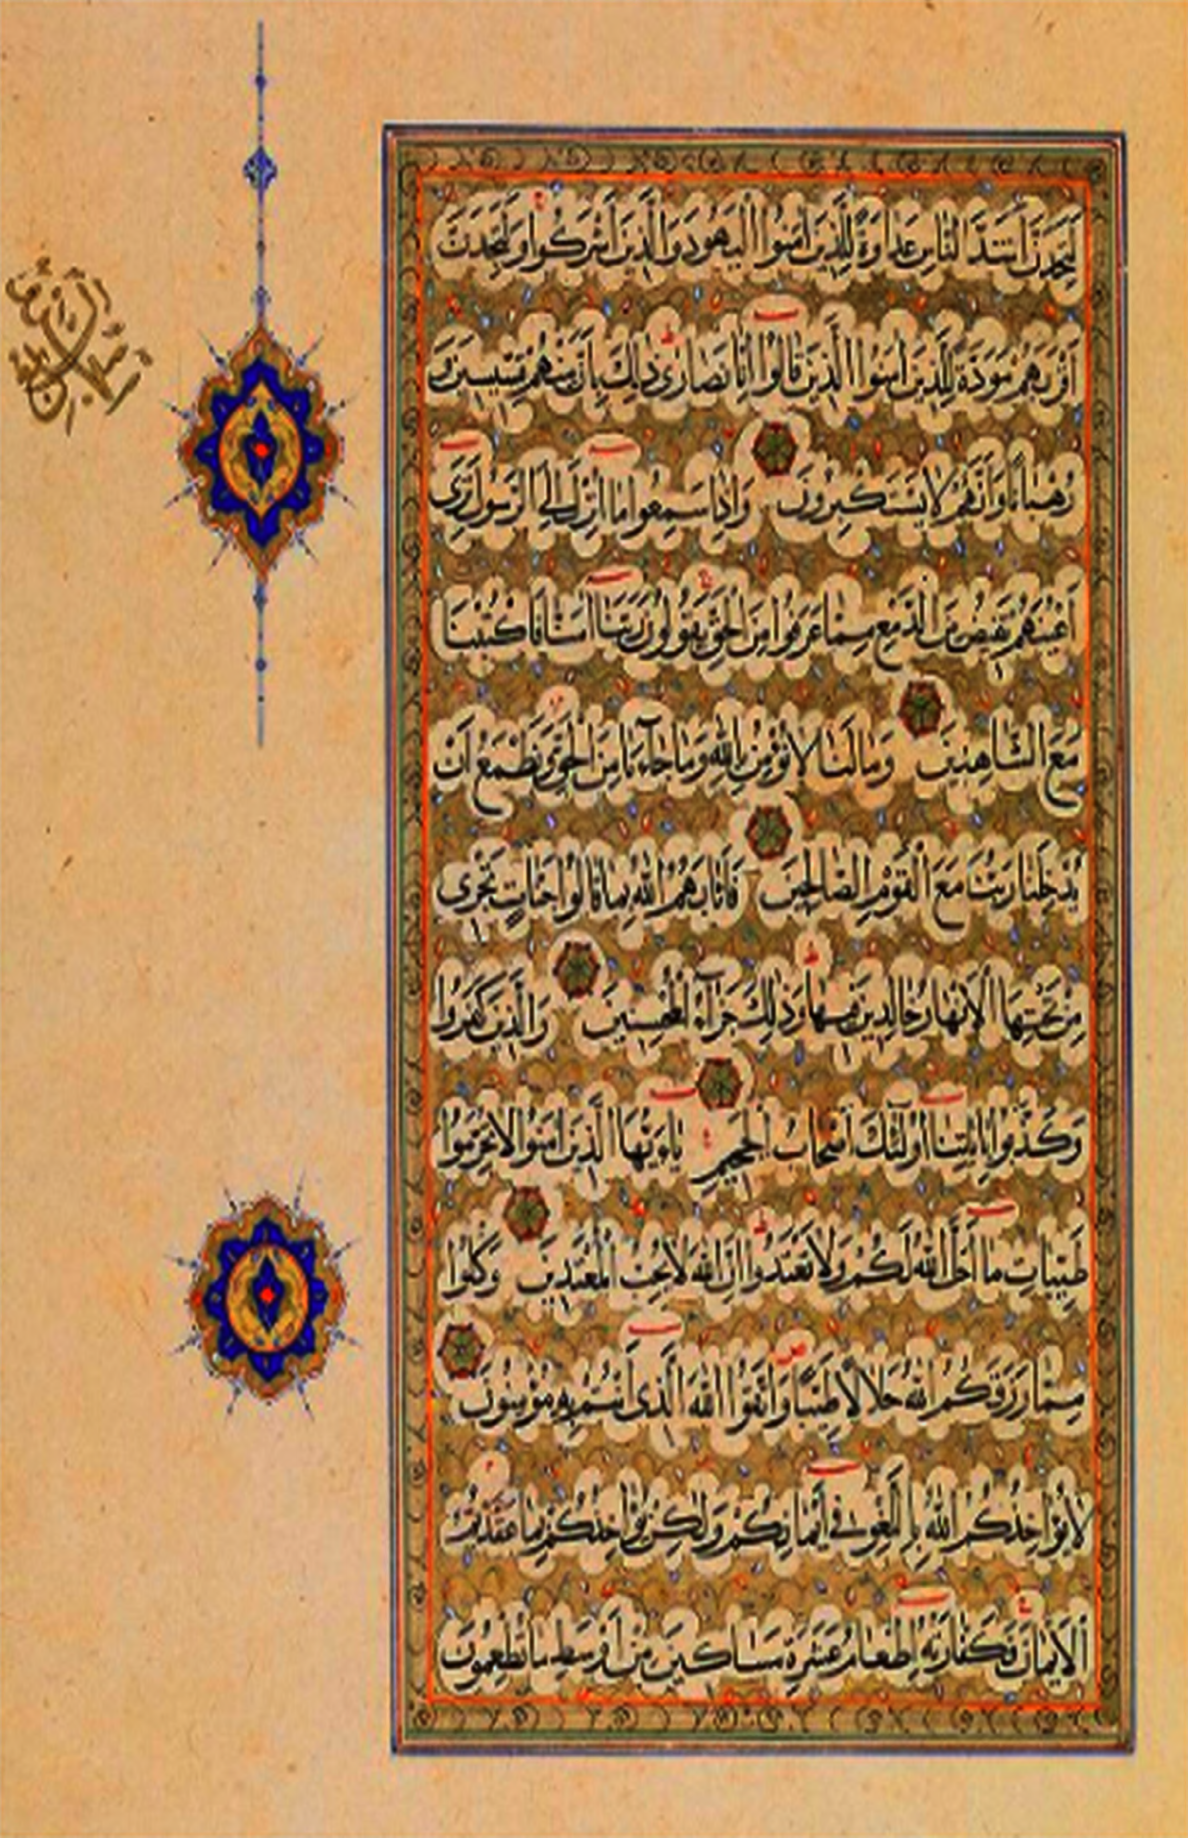 لَتَجِدَنَّ أَشَدَّ النَّاسِ عَدَاوَةً لِلَّذِينَ آمَنُوا الْيَهُودَ وَالَّذِينَ أَشْرَكُوا وَلَتَجِدَنَّ
أَقْرَبَهُمْ مَوَدَّةً لِلَّذِينَ آمَنُوا الَّذِينَ قَالُوا إِنَّا نَصَارَى ذَلِكَ بِأَنَّ مِنْهُمْ قِسِّيسِينَ وَ
رُهْبَانًا وَأَنَّهُمْ لَا يَسْتَكْبِرُونَ وَإِذَا سَمِعُوا مَا أُنْزِلَ إِلَى الرَّسُولِ تَرَى
أَعْيُنَهُمْ تَفِيضُ مِنَ الدَّمْعِ مِمَّا عَرَفُوا مِنَ الْحَقِّ يَقُولُونَ رَبَّنَا آمَنَّا فَاكْتُبْنَا
مَعَ الشَّاهِدِينَ وَمَا لَنَا لَا نُؤْمِنُ بِاللَّهِ وَمَا جَاءَنَا مِنَ الْحَقِّ وَنَطْمَعُ أَنْ
يُدْخِلَنَا رَبُّنَا مَعَ الْقَوْمِ الصَّالِحِينَ فَأَثَابَهُمُ اللَّهُ بِمَا قَالُوا جَنَّاتٍ تَجْرِي
مِنْ تَحْتِهَا الْأَنْهَارُ خَالِدِينَ فِيهَا وَذَلِكَ جَزَاءُ الْمُحْسِنِينَ وَالَّذِينَ كَفَرُوا
وَكَذَّبُوا بِآيَاتِنَا أُولَئِكَ أَصْحَابُ الْجَحِيمِ يَا أَيُّهَا الَّذِينَ آمَنُوا لَا تُحَرِّمُوا
طَيِّبَاتِ مَا أَحَلَّ اللَّهُ لَكُمْ وَلَا تَعْتَدُوا إِنَّ اللَّهَ لَا يُحِبُّ الْمُعْتَدِينَ وَكُلُوا
مِمَّا رَزَقَكُمُ اللَّهُ حَلَالًا طَيِّبًا وَاتَّقُوا اللَّهَ الَّذِي أَنْتُمْ بِهِ مُؤْمِنُونَ
لَا يُؤَاخِذُكُمُ اللَّهُ بِاللَّغْوِ فِي أَيْمَانِكُمْ وَلَكِنْ يُؤَاخِذُكُمْ بِمَا عَقَّدْتُمُ
الْأَيْمَانَ فَكَفَّارَتُهُ إِطْعَامُ عَشَرَةِ مَسَاكِينَ مِنْ أَوْسَطِ مَا تُطْعِمُونَ